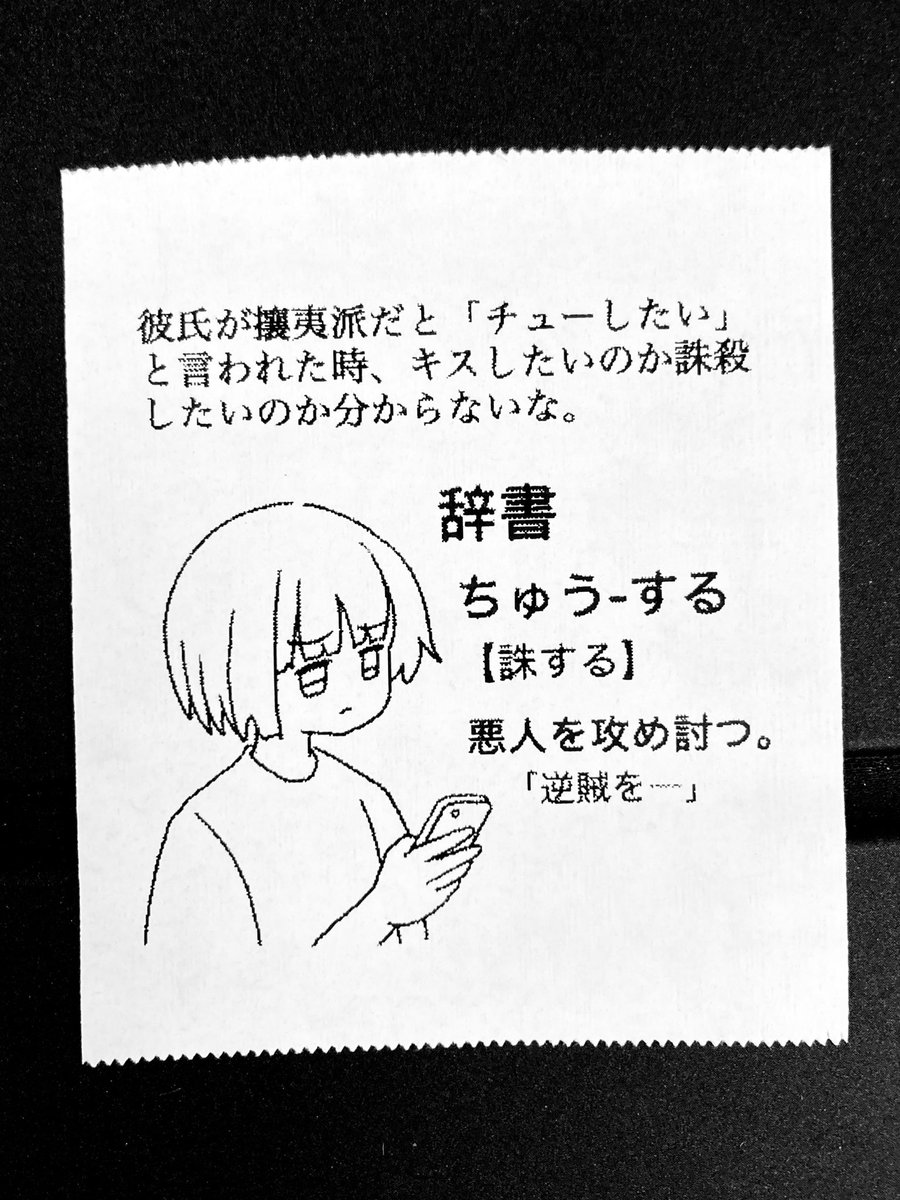 彼氏が攘夷派だと「チューしたい」
と言われた時、キスしたいのか誅殺
したいのか分からないな。
辞書
ちゅう-する
【誅する】
悪人を攻め討つ。
「逆賊を―」